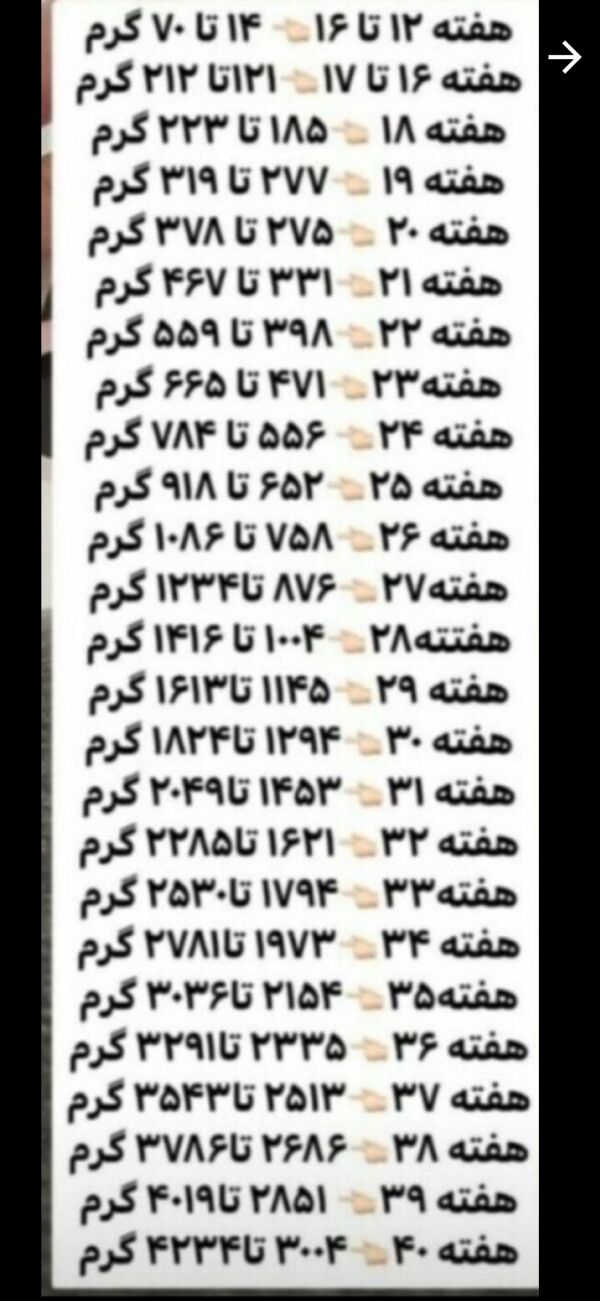 هفته ۱۲ تا ۱۶👈🏻 ۱۴ تا ۷۰ گرم
هفته ۱۶ تا ۱۷👈🏻۱۲۱تا ۲۱۲ گرم
هفته ۱۸ 👈🏻 ۱۸۵ تا ۲۲۳ گرم
هفته ۱۹ 👈🏻 ۲۷۷ تا ۳۱۹ گرم
هفته ۲۰ 👈🏻 ۲۷۵ تا ۳۷۸ گرم
هفته ۲۱ 👈🏻 ۳۳۱ تا ۴۶۷ گرم
هفته ۲۲👈🏻 ۳۹۸ تا ۵۵۹ گرم
هفته۲۳👈🏻 ۴۷۱ تا ۶۶۵ گرم
هفته ۲۴👈🏻 ۵۵۶ تا ۷۸۴ گرم
هفته ۲۵👈🏻 ۶۵۲ تا ۹۱۸ گرم
هفته ۲۶👈🏻 ۷۵۸ تا ۱۰۸۶ گرم
هفته۲۷👈🏻 ۸۷۶ تا۱۲۳۴ گرم
هفتته۲۸👈🏻 ۱۰۰۴ تا ۱۴۱۶ گرم
هفته ۲۹👈🏻 ۱۱۴۵ تا۱۶۱۳ گرم
هفته ۳۰👈🏻 ۱۲۹۴ تا۱۸۲۴ گرم
هفته ۳۱👈🏻 ۱۴۵۳ تا۲۰۴۹ گرم
هفته ۳۲👈🏻 ۱۶۲۱ تا۲۲۸۵ گرم
هفته۳۳👈🏻 ۱۷۹۴ تا۲۵۳۰ گرم
هفته ۳۴👈🏻 ۱۹۷۳ تا۲۷۸۱ گرم
هفته۳۵👈🏻 ۲۱۵۴ تا۳۰۳۶ گرم
هفته ۳۶👈🏻 ۲۳۳۵ تا۳۲۹۱ گرم
هفته ۳۷👈🏻 ۲۵۱۳ تا۳۵۴۳ گرم
هفته ۳۸👈🏻 ۲۶۸۶ تا۳۷۸۶ گرم
هفته ۳۹👈🏻 ۲۸۵۱ تا۴۰۱۹ گرم
هفته ۴۰👈🏻 ۳۰۰۴ تا۴۲۳۴ گرم